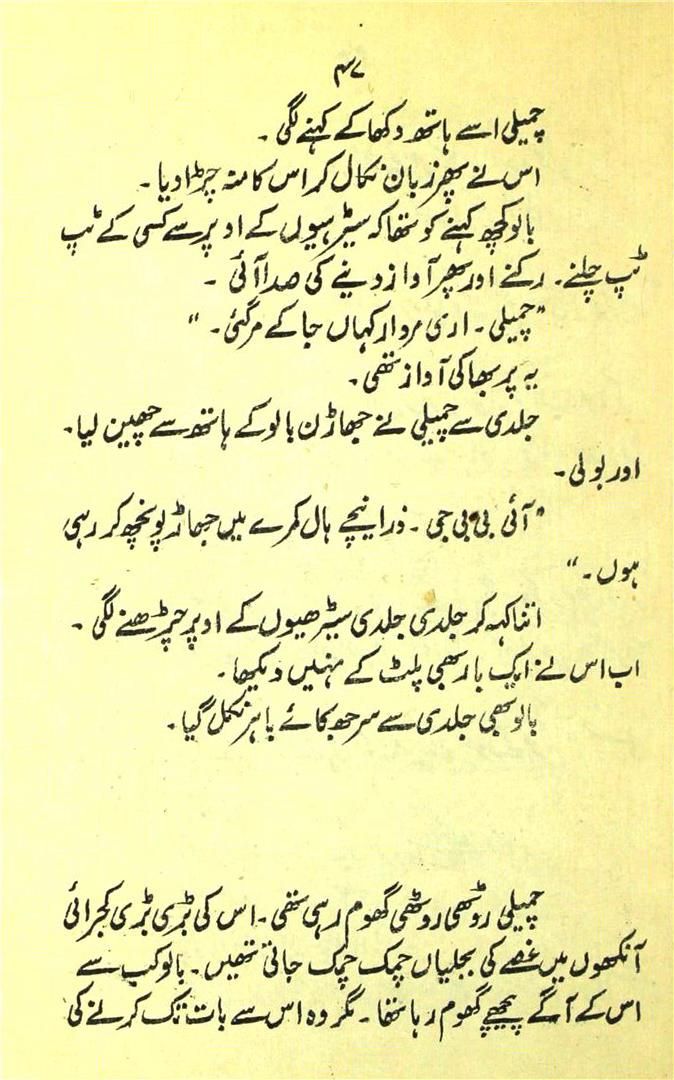 ۴۷
چمیلی اسے ہاتھ دکھا کے کہنے لگی۔
اس نے پھر زبان نکال کر اس کا منہ چڑا دیا۔
بالو کچھ کہنے کو تھا کہ سیڑھیوں کے اوپر سے کسی کے ٹپ
ٹپ چلنے۔ رکنے اور پھر آواز دینے کی صدا آئی۔
"چمیلی۔ اری مردار کہاں جا کے مر گئی۔"
یہ پربھا کی آواز تھی۔
جلدی سے چمیلی نے جھاڑن بالو کے ہاتھ سے چھین لیا۔
اور بولی۔
"آئی بی بی جی۔ ذرا نیچے ہال کمرے میں جھاڑ پونچھ کر رہی
ہوں۔"
اتنا کہہ کر جلدی جلدی سیڑھیوں کے اوپر چڑھنے لگی۔
اب اس نے ایک بار بھی پلٹ کے نہیں دیکھا۔
بالو بھی جلدی سے سر جھکائے باہر نکل گیا۔
چمیلی روٹھی روٹھی گھوم رہی تھی۔ اس کی بڑی بڑی کجرائی
آنکھوں میں غصے کی بجلیاں چمک چمک جاتی تھیں۔ بالو کب سے
اس کے آگے پیچھے گھوم رہا تھا۔ مگر وہ اس سے بات تک کرنے کی